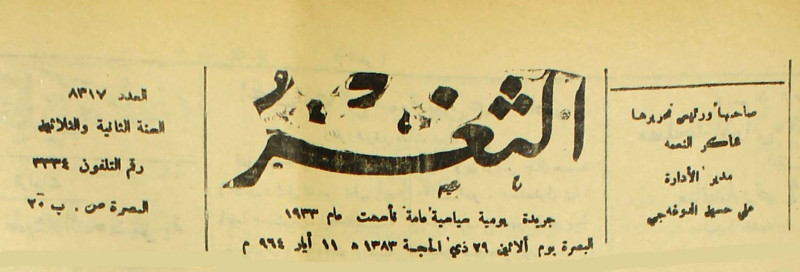 صاحبها ورئيس تحريرها
شاكر النعمه
مدير الأدارة
علي حسين الدوغه‌جي
الثغر
جريدة يومية سياسية عامة تأسست عام ١٩٣٣
البصرة يوم ألاثنين ٢٩ ذي الحجـة ١٣٨٣ ه ١١ أيار ٩٦٤ م
العدد ٨٣١٧
السنة الثانية والثلاثين
رقم التلفون ٣٣٣٤
البصرة ص . ب ٢٠